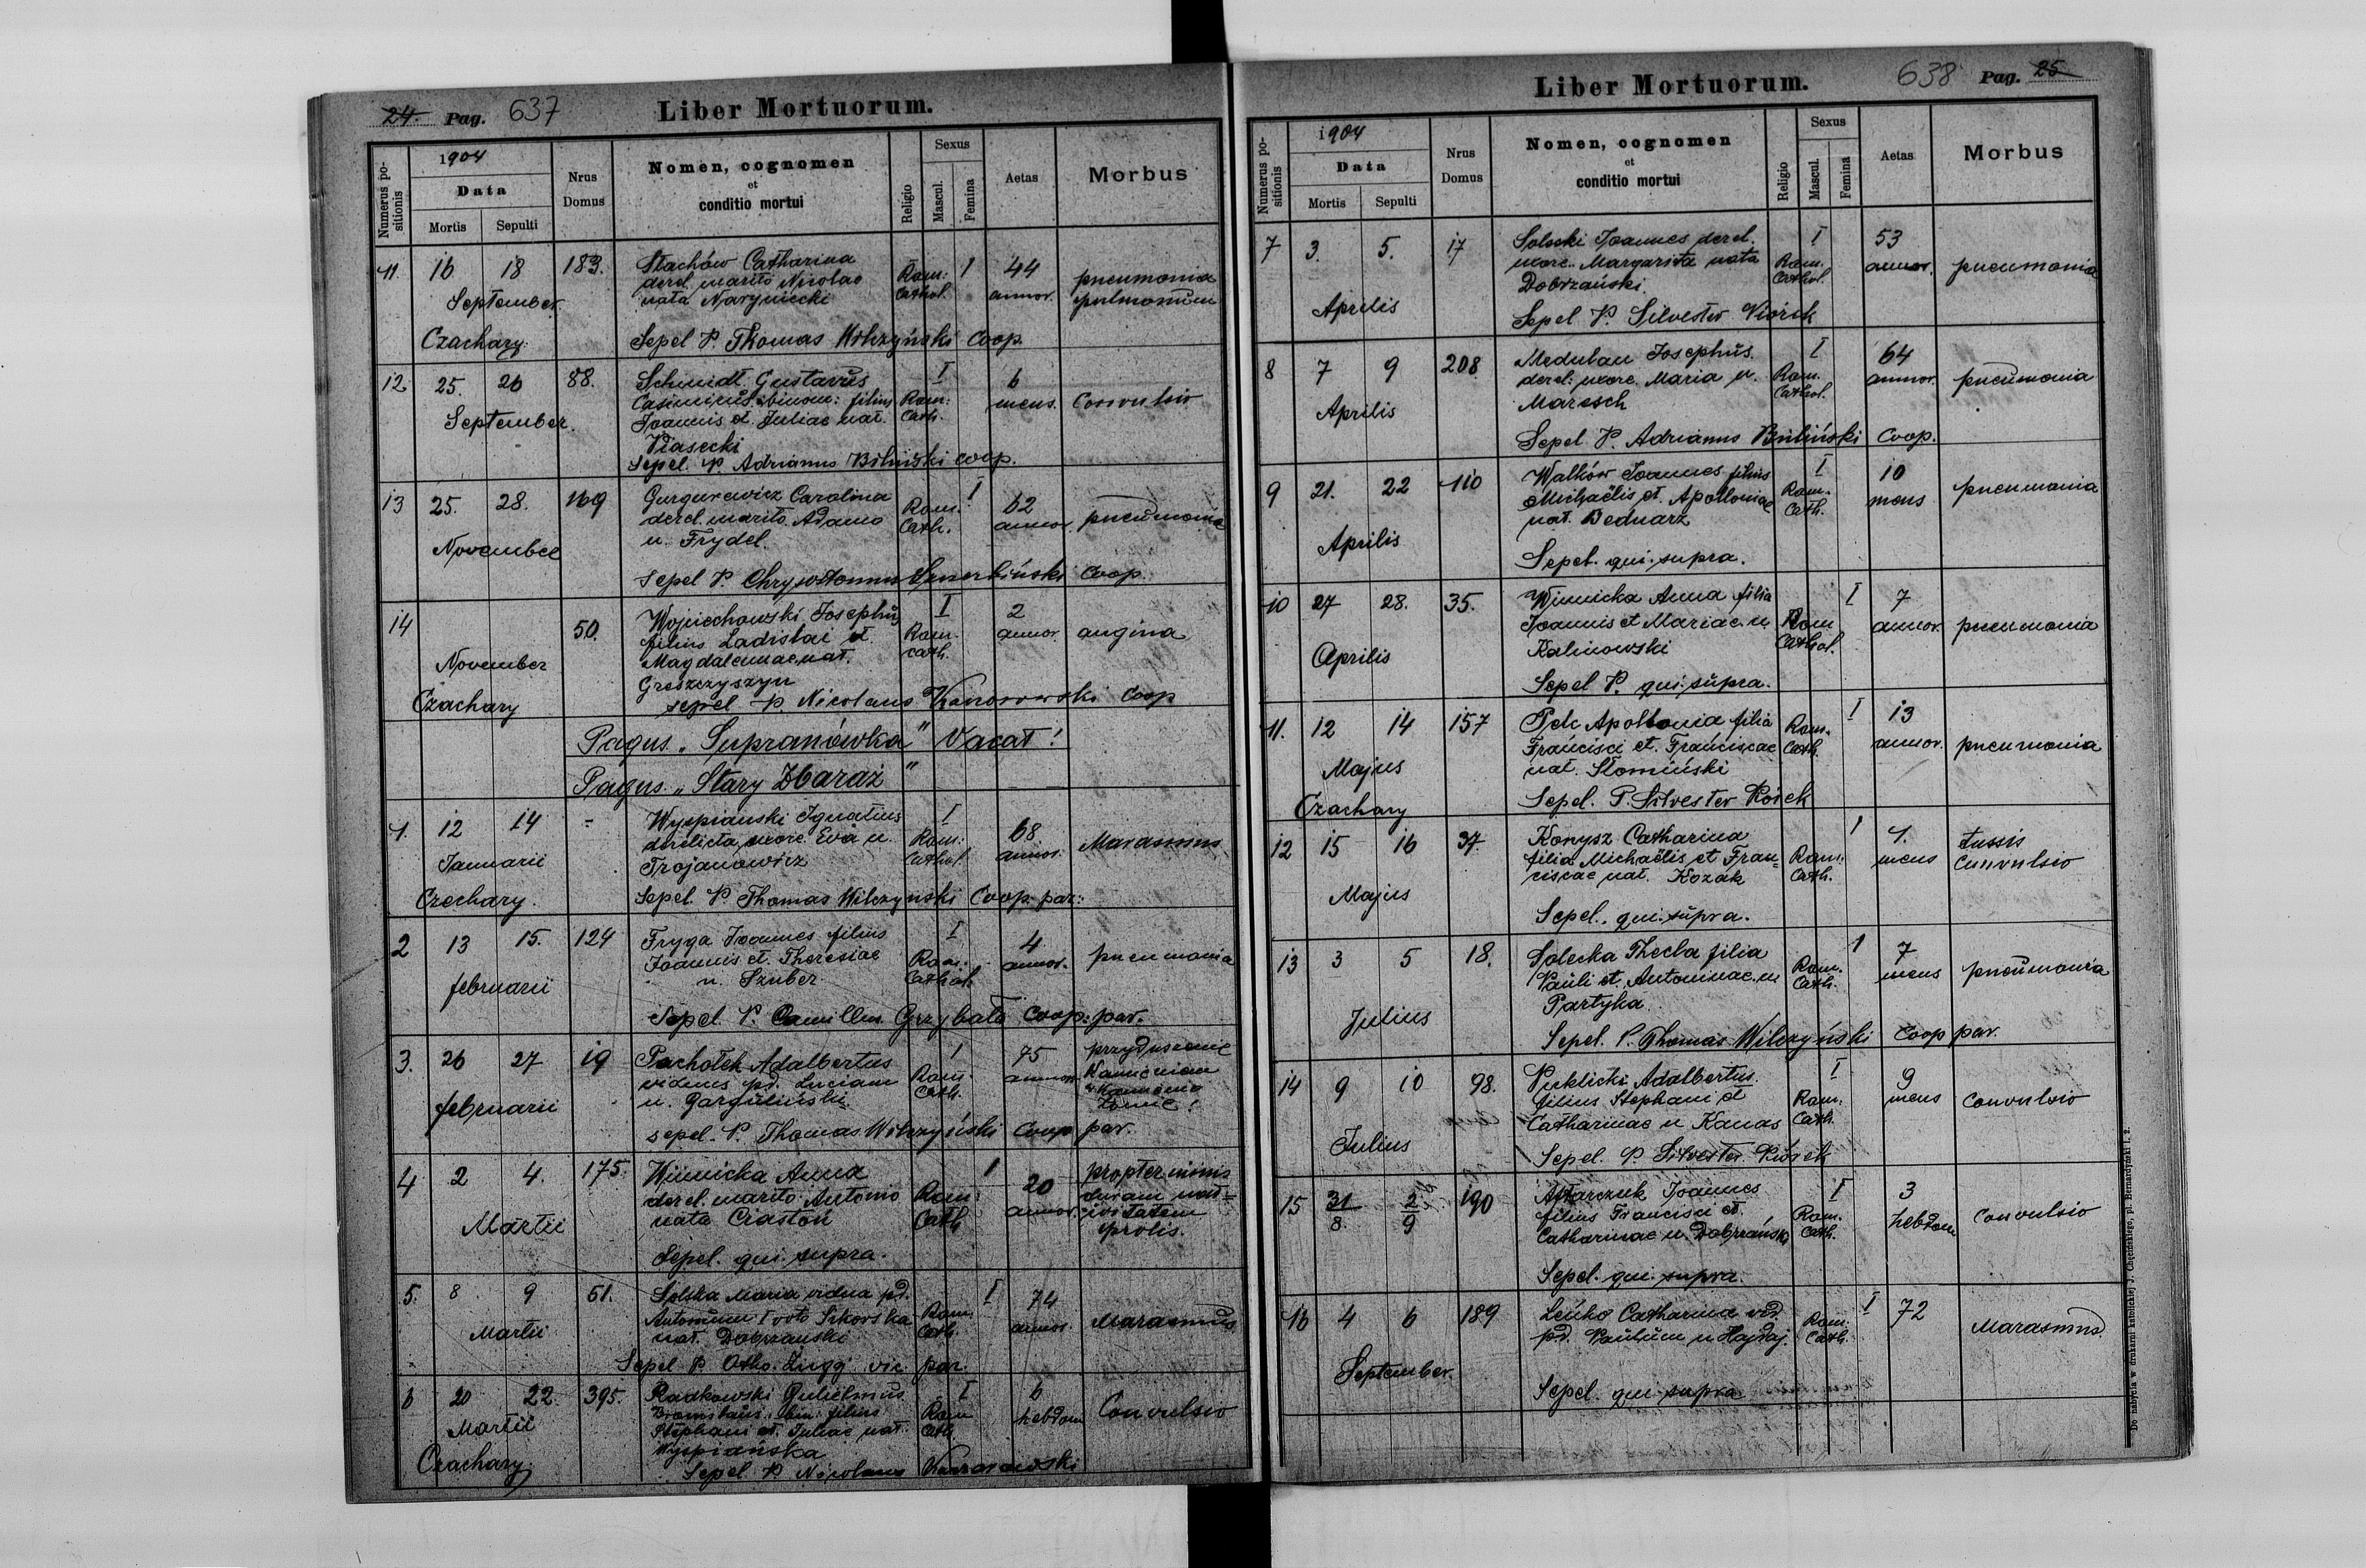 24. Pag. 637
Liber Mortuorum.
Numerus positionis
1904
Data
Mortis
Sepulti
Nrus Domus
Nomen, cognomen
et
conditio mortui
Religio
Sexus
Mascul.
Femina
Aetas
Morbus
11. 16 18 183. Stachów Catharina Rom: 1 44 pneumonia
derel. marito Nicolao Cathol. annor. pulmonum
September nata Naryniecki
Czachary. Sepel P. Thomas Wilczyński Coop.
12 25. 26 88. Schmidt Gustavus I 6
Casimirus binom: filius Rom: mens. Convulsio
September. Joannis et Juliae nat. Cath.
Piasecki
Sepel. P. Adrianus Biliński coop.
13 25. 28. 169 Gurgurewicz Carolina I 62
derel. marito Adamo Rom: annor. pneumonia
November n. Frydel. Cath.
Sepel P. Chrysostomus Coop.
14 50. Wojciechowski Josephus I 2
filius Ladislai et Rom. annor. angina
November Magdalenae nat. cath.
Czachary Greszczyszyn
sepel P. Nicolaus Coop
Pagus „Supranówka" Vacat!
Pagus „Stary Zbaraż"
1. 12 14 - Wyspianski Ignatius I 68
derelicta uxore Eva n. Rom: annor. Marasmus
Januarii Trojanowicz Cathol.
Czechary. Sepel. P. Thomas Wilczyński Coop. par:
2 13 15. 124 Fryga Joannes filius I 4
Joannis et Theresiae Rom. annor. pneumonia
februarii n. Szuber Cathol.
Sepel P. Camillus Grzybała Coop: par.
3. 26 27 19 Pachołek Adalbertus 1 75 przyduszenie
viduus pd. Luciam Rom. annor. Kamieniem
februarii n. Gargulinski Cath. w Kamienio
łomie!
sepel. P. Thomas Wilczyński Coop par.
4 2 4. 175. Winnicka Anna 1 20 propter nimis
derel. marito Antonio Rom: annor. duram nat=
Martii nata Ciastoń Cath ivitatem
prolis.
Sepel. qui supra.
5. 8 9 51. Solska Maria vidua pd. I 74
Antonium I voto Sikorska Rom annor. Marasmus
Martii nat. Dobrzanski Cath.
Sepel P Otho Zugg vic. par.
6 20 22. 395. Radkowski Gulielmus I 6
Bronislaus bin: filius Rom hebdom Convulsio
Martii Stephani et Juliae nat. Cath.
Czachary. Wyspiańska
Sepel P. Nicolaus
Liber Mortuorum.
638 Pag. 25
Numerus positionis
1904
Data
Mortis
Sepulti
Nrus Domus
Nomen, cognomen
et
conditio mortui
Religio
Sexus
Mascul.
Femina
Aetas
Morbus
7 3. 5. 17 Solecki Joannes derel. I 53
uxore Margarita nata Rom. annor. pneumonia
Dobrzański. Cathol.
Aprilis Sepel P. Silvester Piórek
8 7 9 208 Medulan Josephus I 64
derel: uxore Maria n. Rom. annor. pneumonia
Aprilis Maresch Cathol.
Sepel P. Adrianus Biliński Coop.
9 21. 22 110 Walków Joannes filius I 10
Michaëlis et Apolloniae Rom. mens pneumonia
Aprilis nat. Bednarz Cath.
Sepel. qui supra.
10 27 28. 35. Winnicka Anna filia I 7
Joannis et Mariae n. Rom annor. pneumonia
Aprilis Kalinowski Cathol.
Sepel P. qui supra.
11. 12 14 157 Pelc Apollonia filia I 13
Francisci et Franciscae Rom. annor. pneumonia
Majus nat. Słomiński Cath.
Czachary Sepel. P. Silvester Piórek
12 15 16 37. Konysz Catharina 1 1. tussis
filia Michaëlis et Fran= Rom: mens Convulsio
Majus ciscae nat. Kozak Cath.
Sepel. qui supra.
13 3 5 18. Solecka Thecla filia 1 7
Pauli et Antoninae n Rom. mens pneumonia
Julius Partyka. Cath.
Sepel. P. Thomas Wilczyński Coop par.
14 9 10 98. Puklicki Adalbertus I 9
filius Stephani et Rom: mens Convulsio
Julius Catharinae n Kanas Cath.
Sepel. P. Silvester Piórek
15 31/8. 2/9 190 Joannes I 3
filius Francisci et Rom. hebdom Convulsio
Catharinae n. Dobrzański Cath.
Sepel. qui supra.
16 4 6 189 Leńko Catharina vid. I 72
pd. Paulum n Hajdaj. Rom: Marasmus.
September. Cath.
Sepel. qui supra
Do nabycia w drukarni katolickiej J. Chęcińskiego, pl. Bernardyński l. 2.